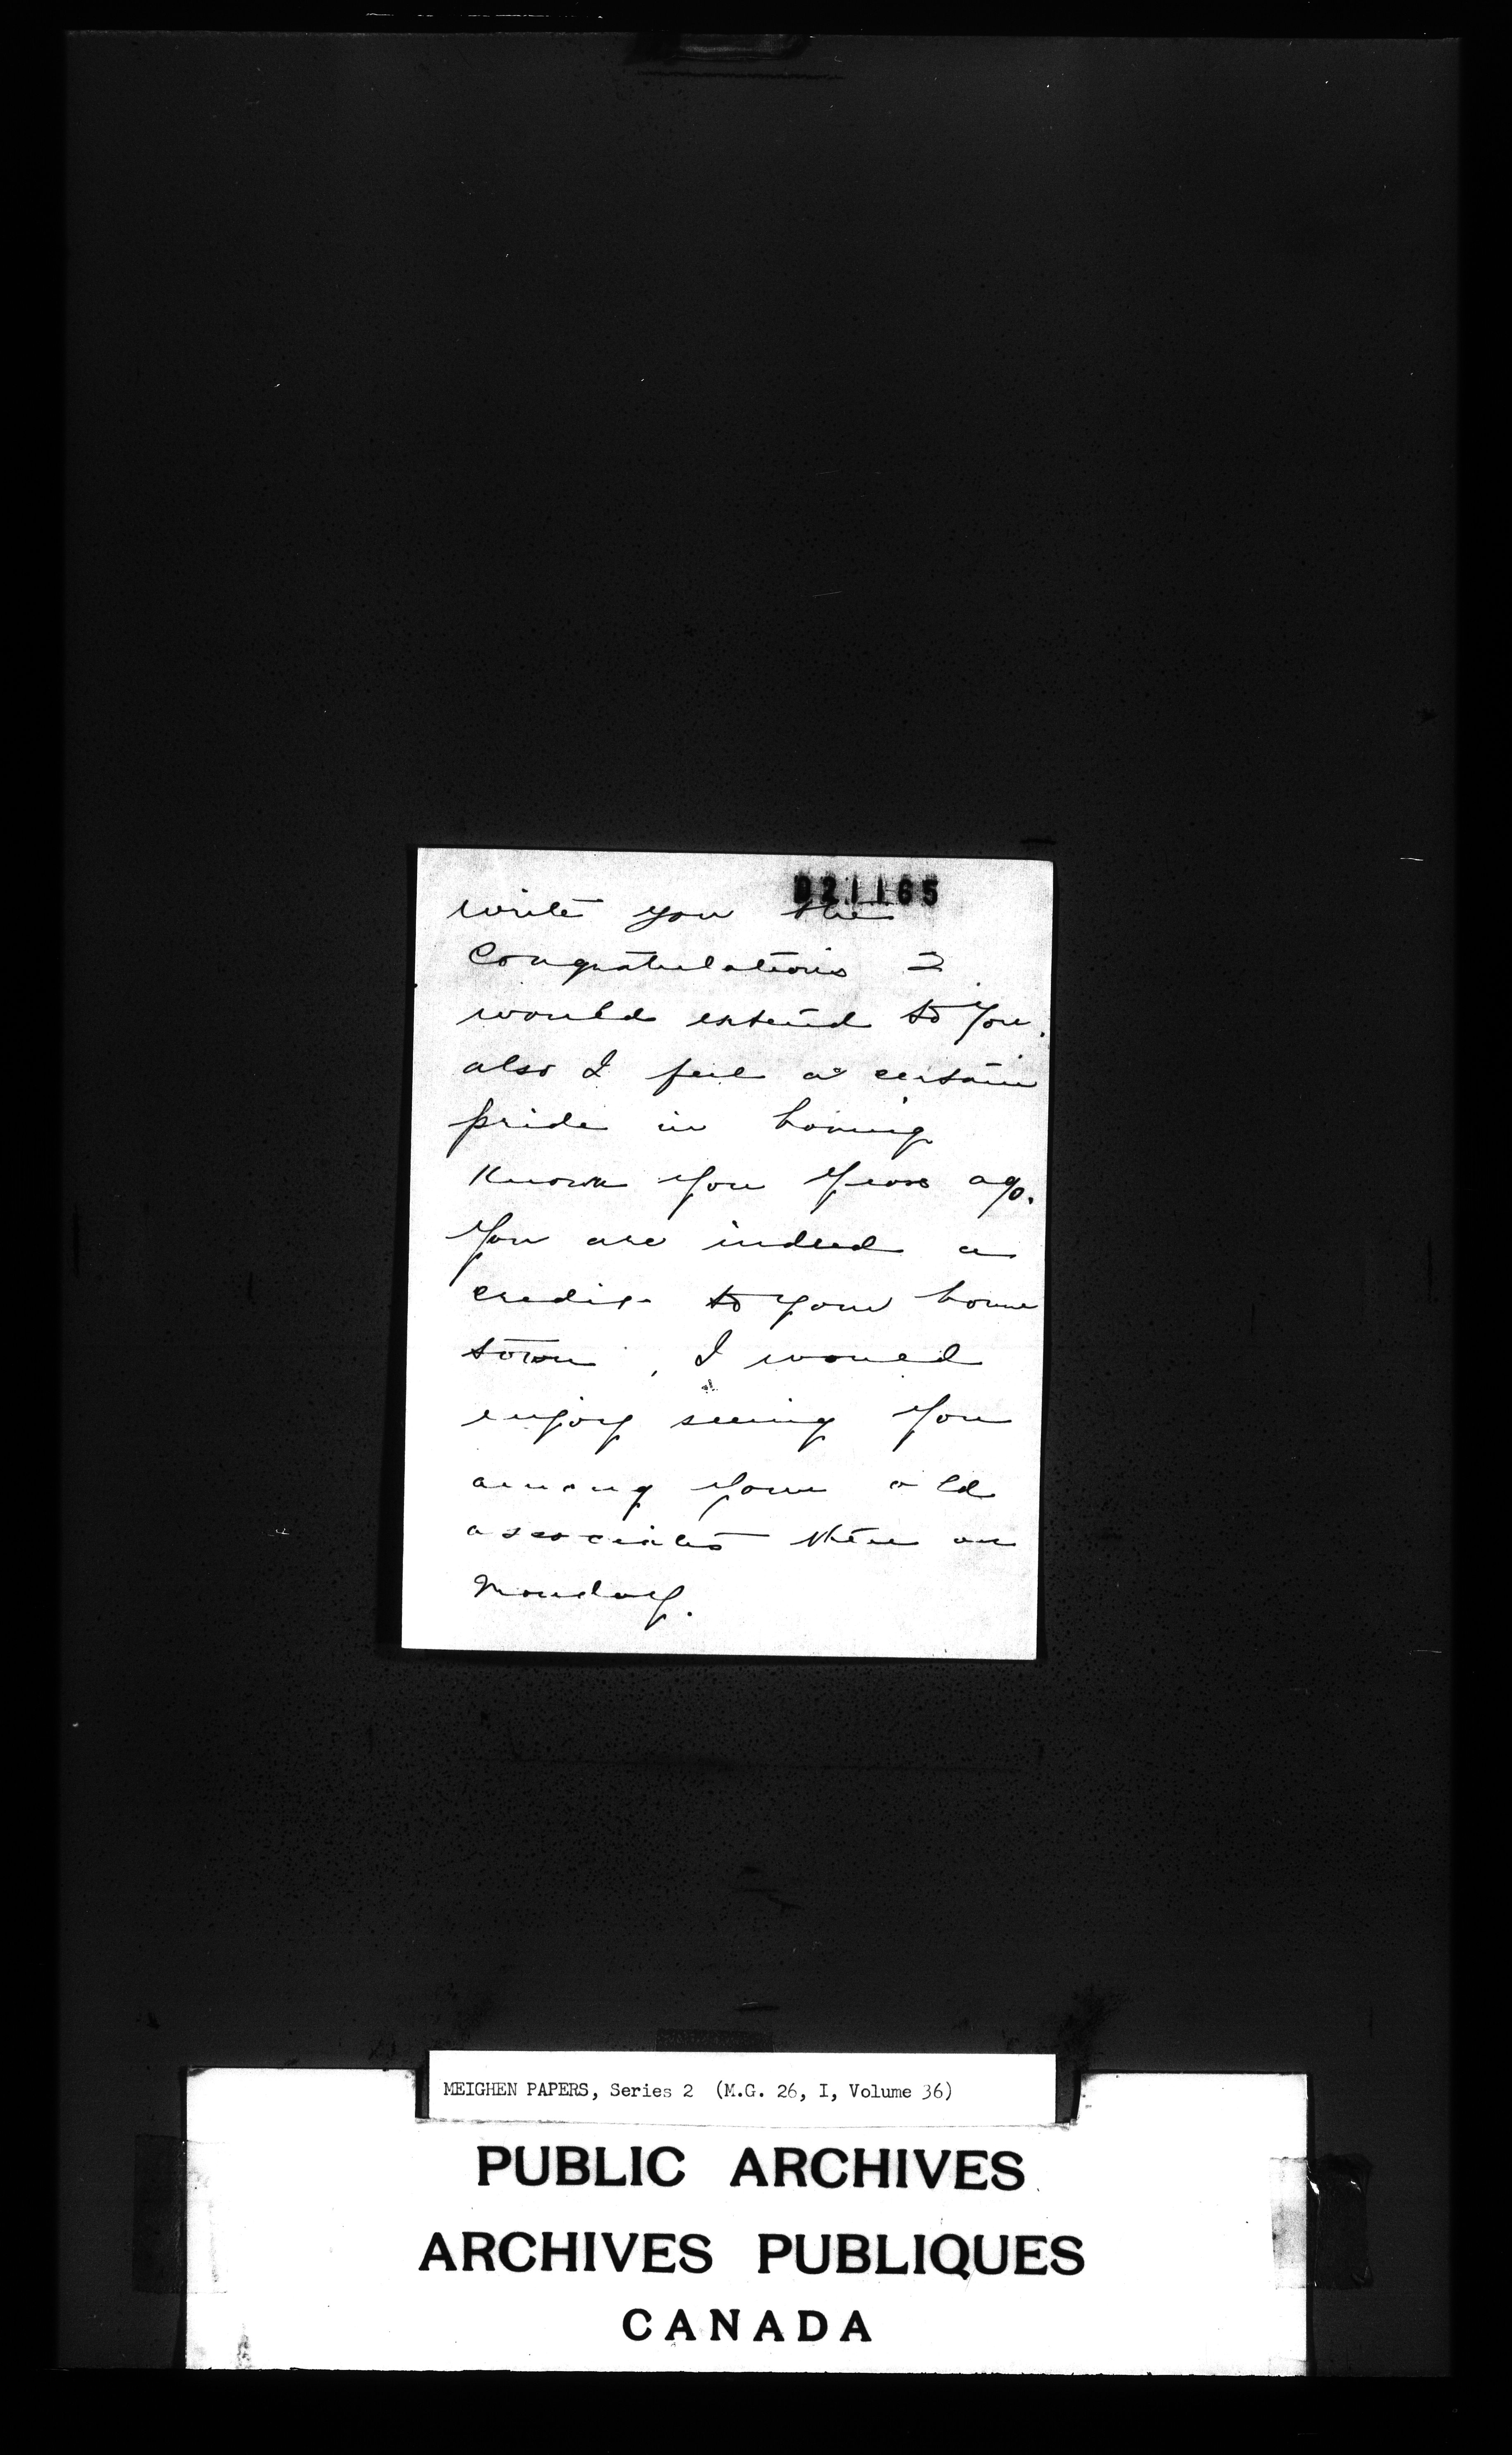 021165
write you the
Congratulations I
would extend to you.
also I feel a certain
pride in having
known you years ago.
You are indeed a
credit to your home
town, I would
enjoy seeing you
among your old
associates there on
Monday.
MEIGHEN PAPERS, Series 2 (M.G. 26, I, Volume 36)
PUBLIC ARCHIVES
ARCHIVES PUBLIQUES
CANADA